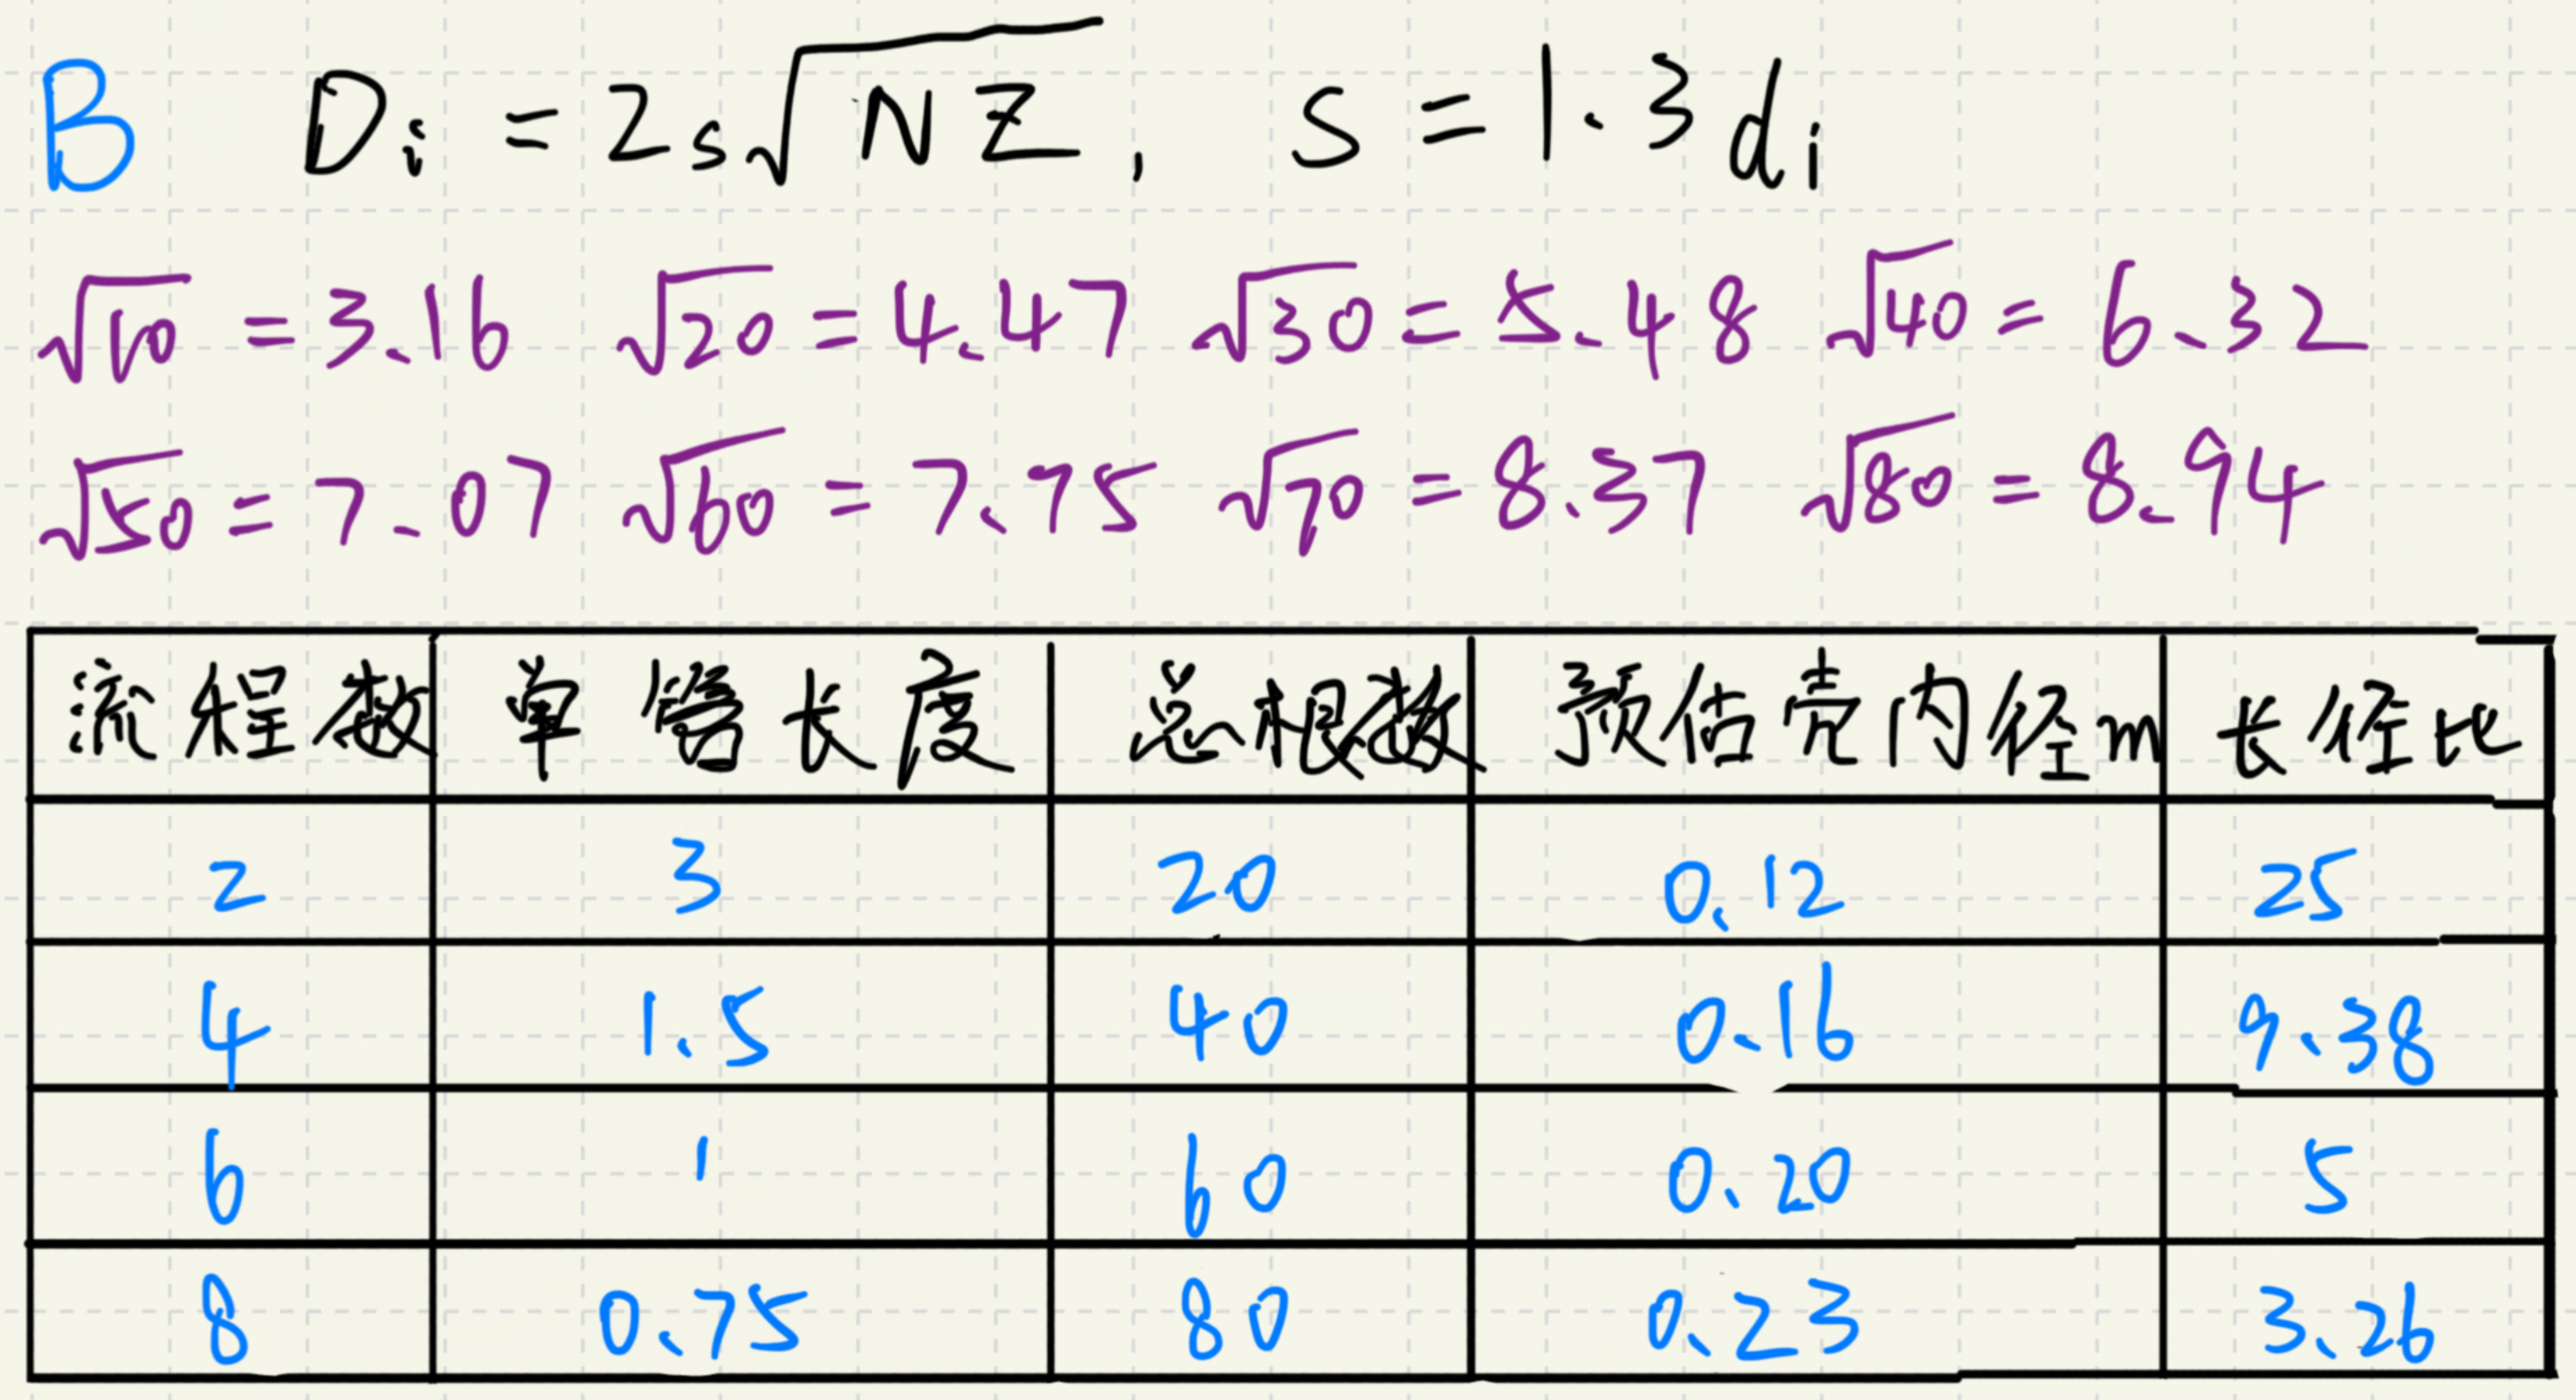 B Di = 2s√NZ, S = 1.3di
√10 = 3.16 √20 = 4.47 √30 = 5.48 √40 = 6.32
√50 = 7.07 √60 = 7.75 √70 = 8.37 √80 = 8.94
流程数 单管长度 总根数 预估壳内径m 长径比
2 3 20 0.12 25
4 1.5 40 0.16 9.38
6 1 60 0.20 5
8 0.75 80 0.23 3.26